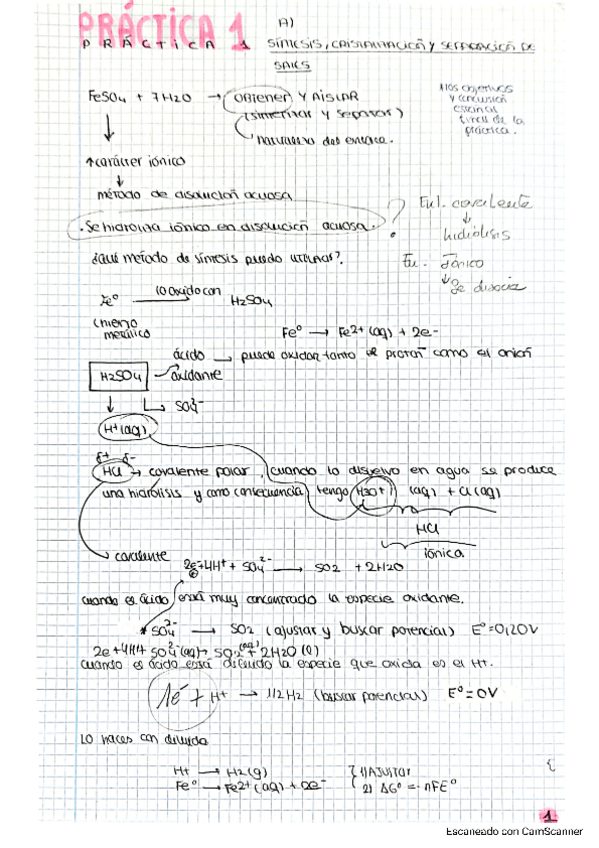 PRÁCTICA 1
PRÁCTICA 1
A)
SÍNTESIS, CRISTALIZACIÓN y SEPARACIÓN DE
SALES
FeSO4 + 7H2O → OBTENER Y AISLAR
(sintetizar y separar)
naturaleza del enlace.
*los objetivos
y conclusión
final de la
práctica.
↑carácter iónico
↓
método de disolución acuosa
. Se hidroliza iónico en disolución acuosa. ?
Eu. covalente
↓
hidrólisis
Eu. Iónico
↓ Se disocia
¿Qué método de síntesis puedo utilizar?.
Fe⁰ lo oxido con → H2SO4
(hierro
metálico
Fe⁰ → Fe2+ (aq) + 2e-
ácido → puede oxidar tanto el protón como el anión
H2SO4 oxidante
↓ ↳ SO4 2-
H+(aq)
δ+ δ-
HCl → covalente polar, cuando lo disuelvo en agua se produce
una hidrólisis y como consecuencia tengo H3O+ (aq) + Cl (aq)
HCl
iónica
covalente
2e-+4H+ + SO4 2- → SO2 + 2H2O
cuando es ácido está muy concentrado la especie oxidante.
* SO4 2- → SO2 (ajustar y buscar potencial) E⁰=0,20V
2e+4H+ SO4 2-(aq)→ SO2 (aq) + 2H2O (l)
cuando es ácido está diluido la especie que oxida es el H+.
1e- + H+ → 1/2 H2 (buscar potencial) E⁰=0V
Lo haces con diluido
H+ → H2(g)
Fe⁰ → Fe2+(aq) + 2e-
1) AJUSTAR
2) ΔG⁰ = -nFE⁰
1
Escaneado con CamScanner